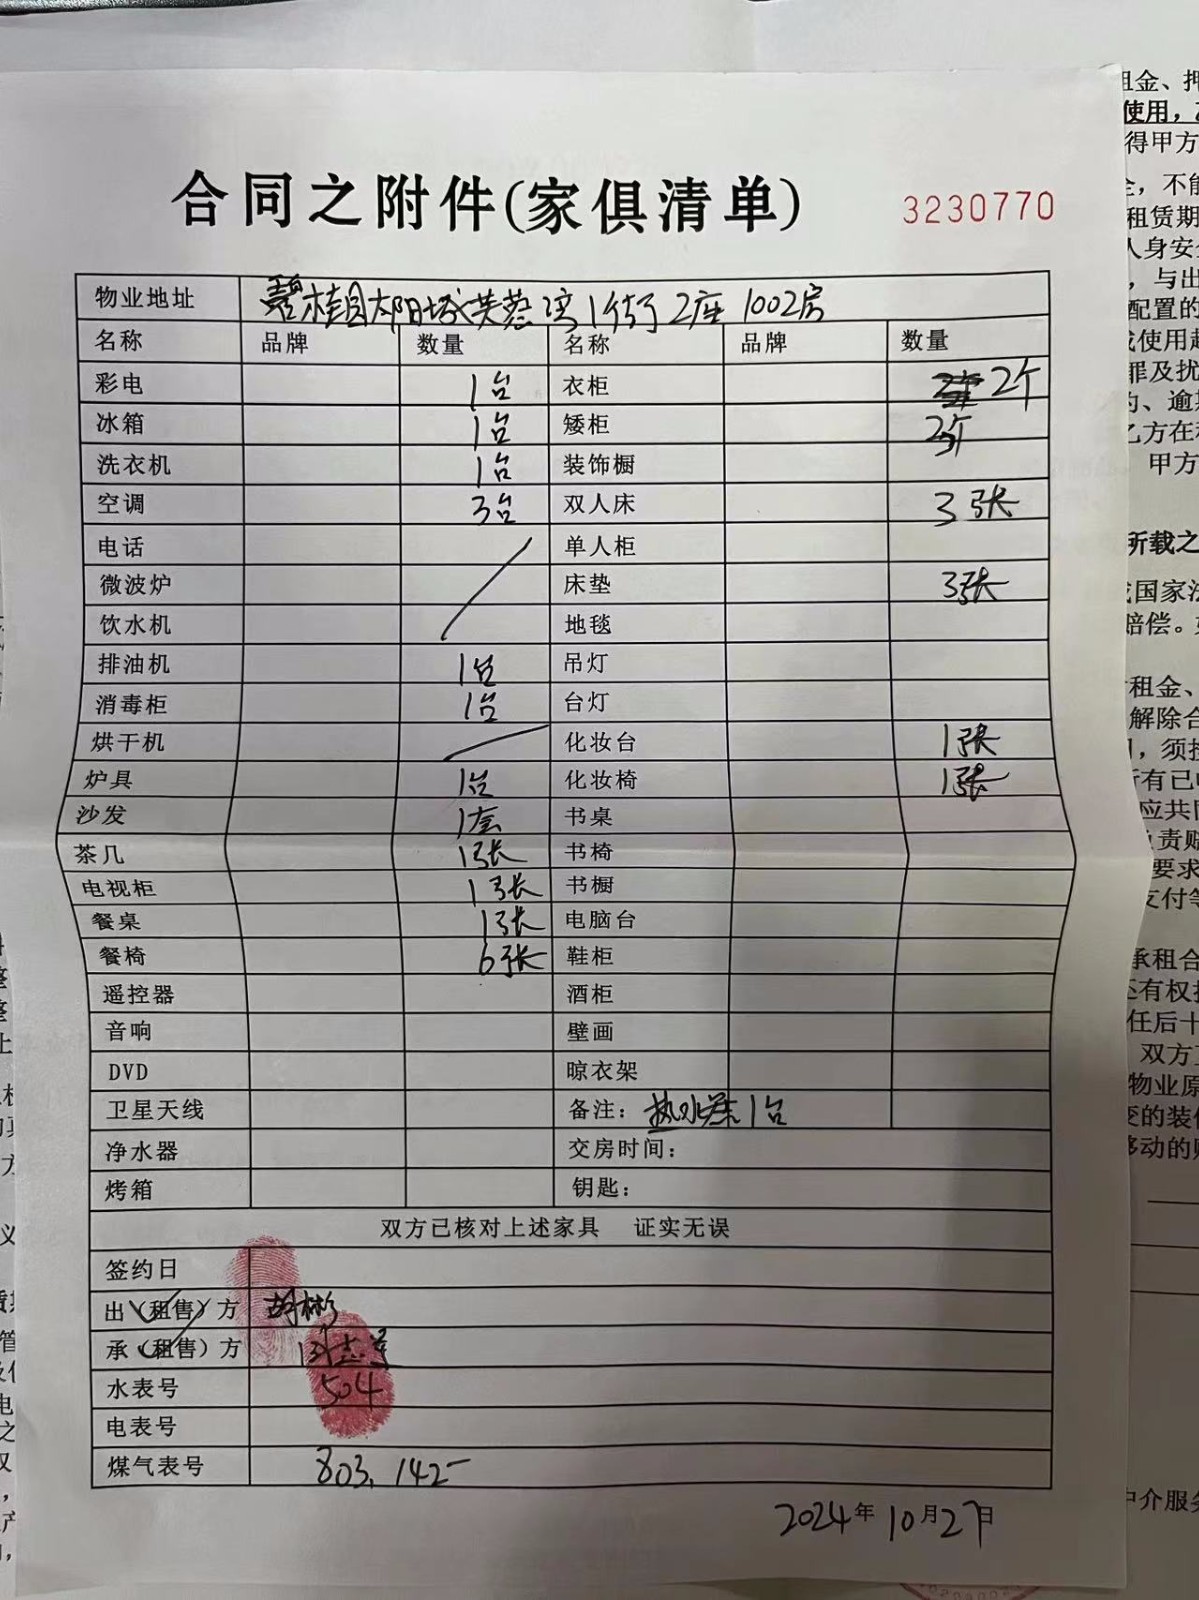 合同之附件(家俱清单) 3230770
物业地址 碧桂园太阳城芙蓉湾1街2座1002房
名称 品牌 数量 名称 品牌 数量
彩电 1台 衣柜 2个
冰箱 1台 矮柜 2个
洗衣机 1台 装饰橱
空调 3台 双人床 3张
电话 单人柜
微波炉 床垫 3张
饮水机 地毯
排油机 1台 吊灯
消毒柜 1台 台灯
烘干机 化妆台 1张
炉具 1台 化妆椅 1张
沙发 1套 书桌
茶几 1张 书椅
电视柜 1张 书橱
餐桌 1张 电脑台
餐椅 6张 鞋柜
遥控器 酒柜
音响 壁画
DVD 晾衣架
卫星天线 备注: 热水器1台
净水器 交房时间:
烤箱 钥匙:
双方已核对上述家具 证实无误
签约日
出(租售)方 胡彬
承(租售)方
水表号 504
电表号
煤气表号 803,142
2024年10月27日
租金、押
使用,
得甲方
租赁期
人身安
,与出
配置的
使用
罪及扰
、逾
乙方在
甲方
所载之
国家法
赔偿。
租金、
解除合
,须按
所有已
应共同
责赔
要求
支付
承租合
还有权
任后十
双方
物业原
变的装
移动的
中介服务